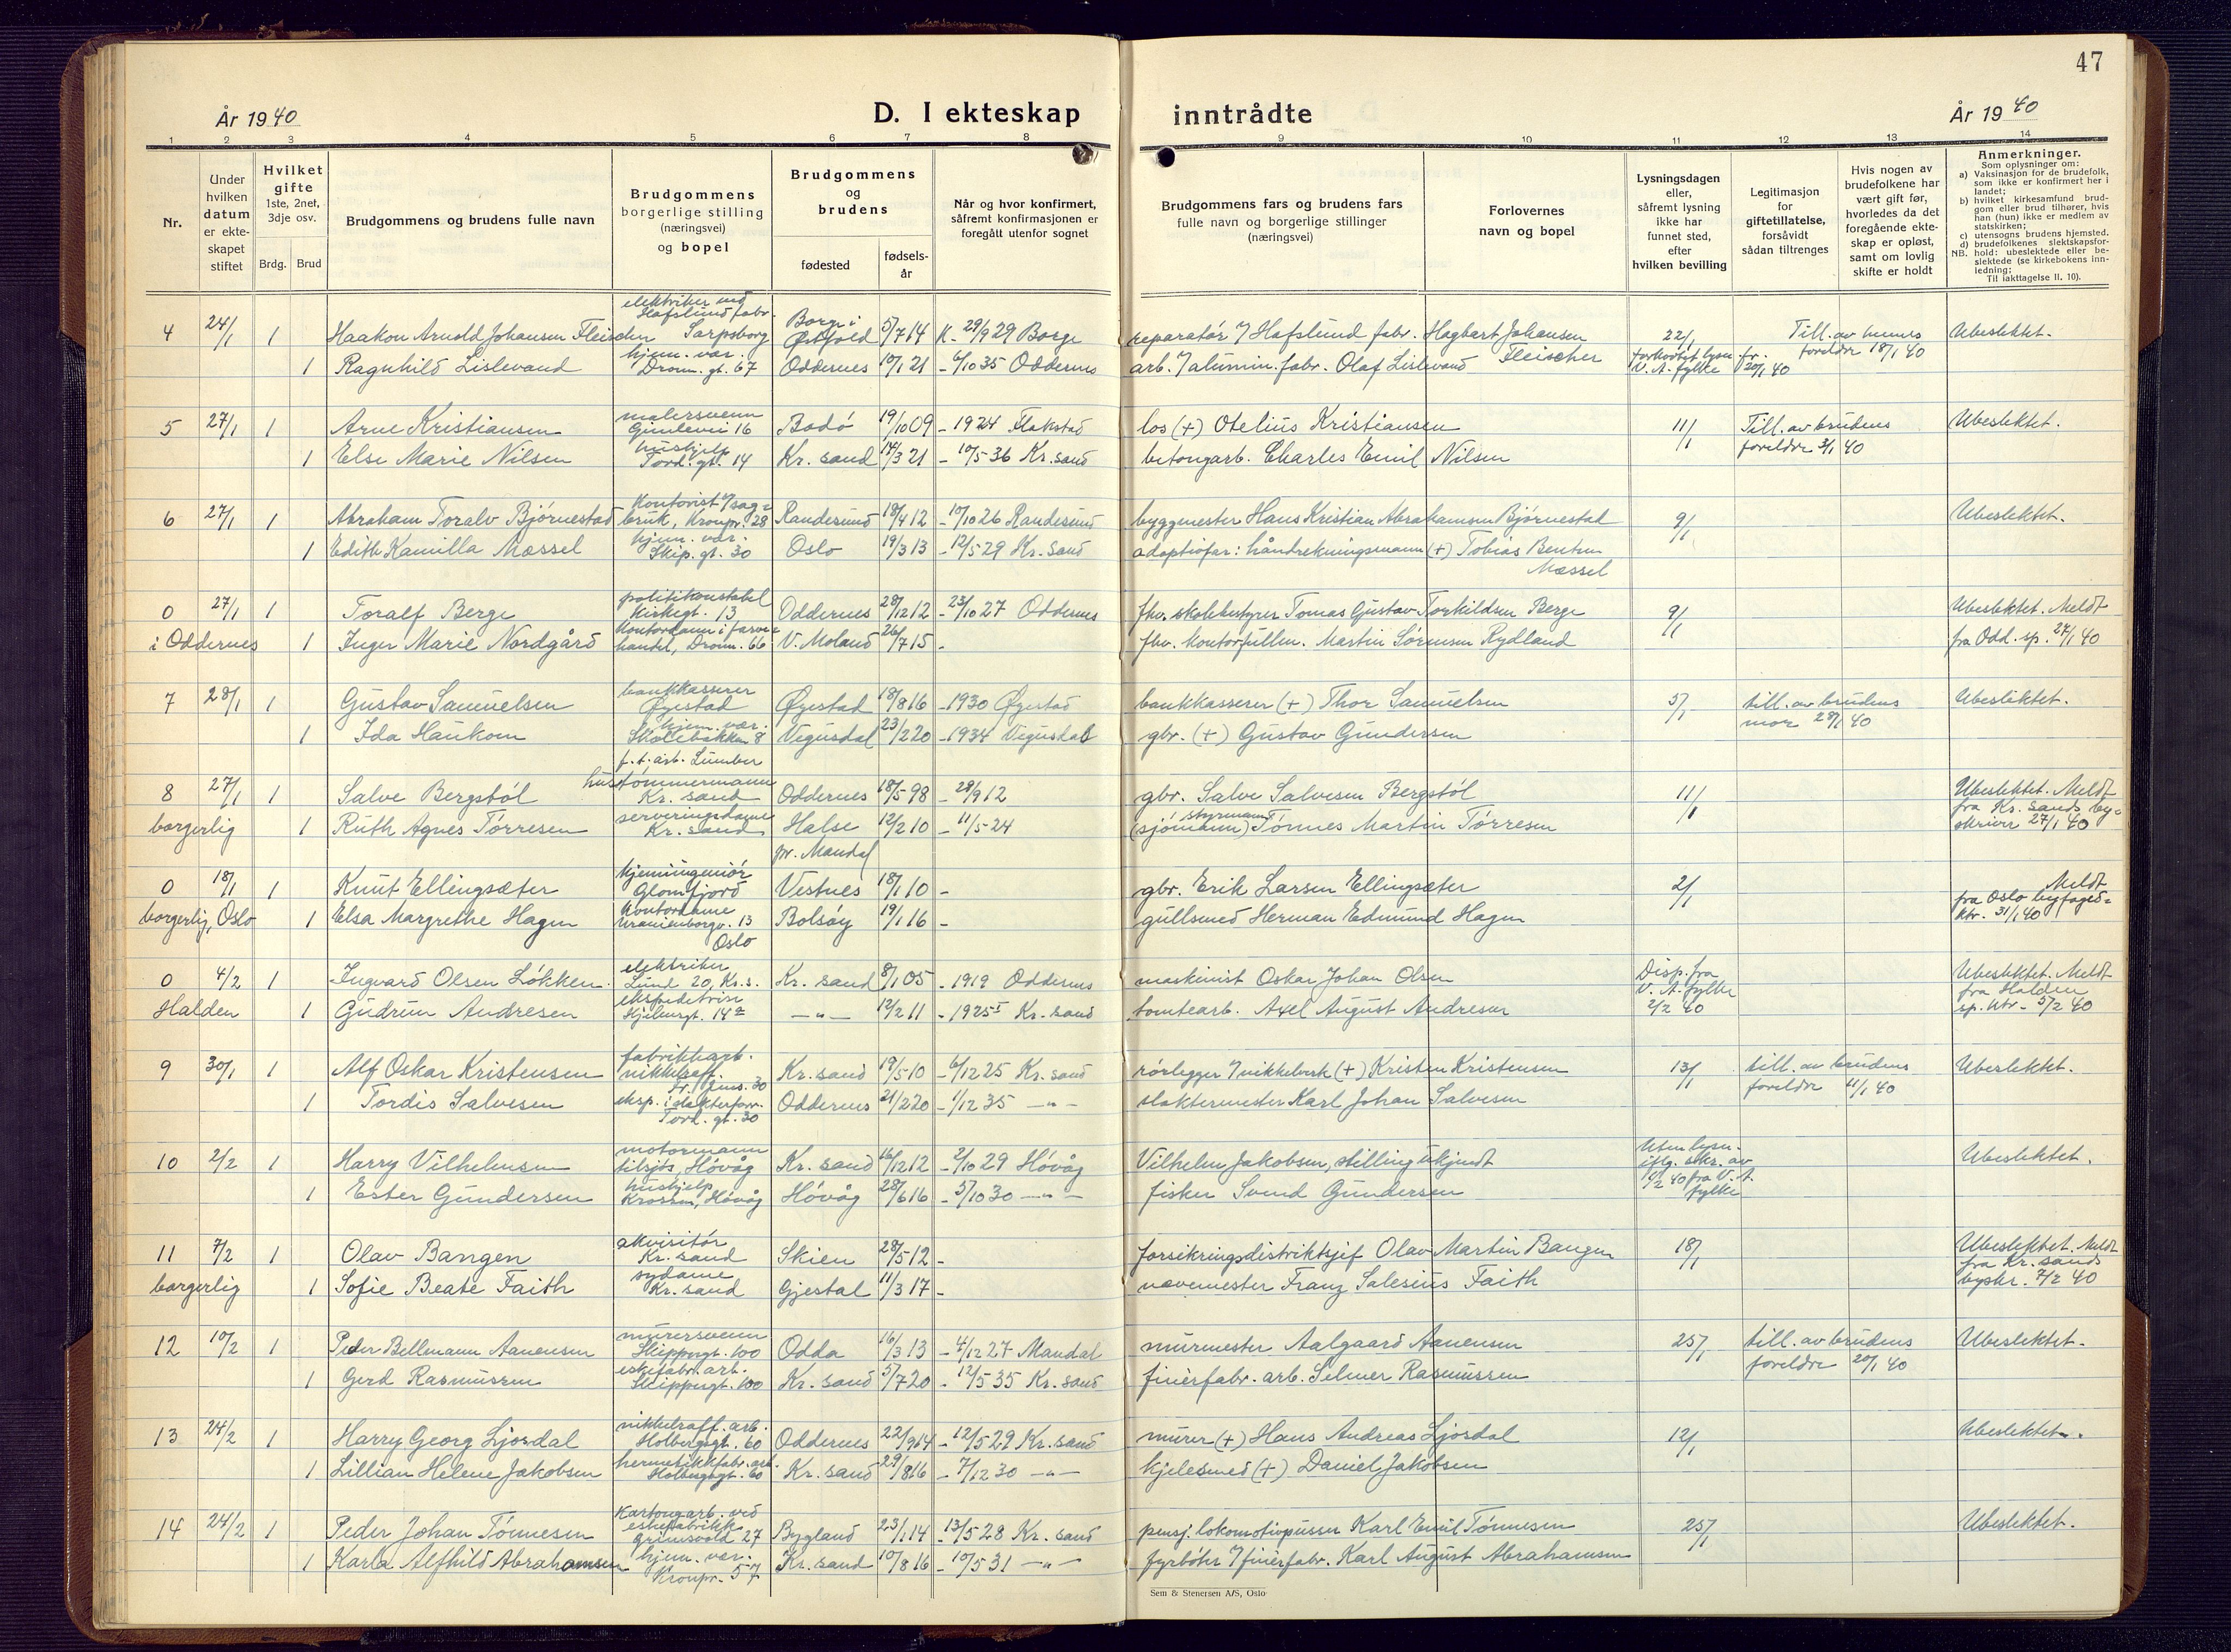 47
År 1940
D. I ekteskap
inntrådte
År 1940
1 2 3 4 5 6 7 8 9 10 11 12 13 14
Nr.
Under
hvilken
datum
er ekte-
skapet
stiftet
Hvilket
gifte
1ste, 2net,
3dje osv.
Brdg. Brud
Brudgommens og brudens fulle navn
Brudgommens
borgerlige stilling
(næringsvei)
og bopel
Brudgommens
og
brudens
fødested
fødsels-
år
Når og hvor konfirmert,
såfremt konfirmasjonen er
foregått utenfor sognet
Brudgommens fars og brudens fars
fulle navn og borgerlige stillinger
(næringsvei)
Forlovernes
navn og bopel
Lysningsdagen
eller,
såfremt lysning
ikke har
funnet sted,
efter
hvilken bevilling
Legitimasjon
for
giftetillatelse,
forsåvidt
sådan tiltrenges
Hvis nogen av
brudefolkene har
vært gift før,
hvorledes da det
foregående ekte-
skap er opløst,
samt om lovlig
skifte er holdt
Anmerkninger.
Som oplysninger om:
a) Vaksinasjon for de brudefolk,
som ikke er konfirmert her i
landet;
b) hvilket kirkesamfund brud-
gom eller brud tilhører, hvis
han (hun) ikke er medlem av
statskirken;
c) utensogns brudens hjemsted.
d) brudefolkenes slektskapsfor-
hold: ubeslektede eller be-
slektede (se kirkebokens inn-
ledning;
NB.
Til iakttagelse II, 10).
elektriker ved
Hafslund fabr.
4 24/1 1 Haakon Arnold Johansen Fleischer Sarpsborg Borge i Østfold 5/7 14 K. 29/9 29 Borge reparatør v/ Hafslund fabr. Hagbart Johansen Fleischer 22/1 Till. av hennes foreldre 18/1 40 Ubeslektet.
1 Ragnhild Lislevand hjem. vær. Dronn. gt. 67 Oddernes 10/1 21 - 6/10 35 Oddernes arb. v/ alumin. fabr. Olaf Lislevand forkortet lysn. fr. V. A. fylke 20/1 40
5 27/1 1 Arne Kristiansen malersvenn Gimlevei 16 Bodø 19/10 09 - 1924 Flakstad los (+) Otelius Kristiansen 11/1 Till. av brudens foreldre 3/1 40 Ubeslektet.
1 Else Marie Nilsen hushjelp Tord. gt. 14 Kr. sand 14/3 21 - 10/5 36 Kr. sand betongarb. Charles Emil Nilsen
6 27/1 1 Abraham Toralv Bjørnestad Kontorist v/ sagbruk, Kronpr. 28 Randesund 18/4 12 - 10/10 26 Randesund byggmester Hans Kristian Abrahamsen Bjørnestad 9/1 Ubeslektet.
1 Edith Kamilla Mæssel hjem. vær. Skip. gt. 30 Oslo 19/3 13 - 12/5 29 Kr. sand adoptivfar: håndrekningsmann (+) Tobias Bentsen Mæssel
0 27/1 1 Toralf Berge politikonstabel Kirkegt. 13 Oddernes 28/12 12 - 23/10 27 Oddernes fhv. skolebestyrer Tomas Gustav Torkildsen Berge 9/1 Ubeslektet. Meldt
i Oddernes 1 Inger Marie Nordgård Kontordame i farvehandel, Dronn. 66 V. Moland 26/7 15 - fhv. kontorfullm. Martin Sørensen Rydland fra Odd. sp. 27/1 40
7 28/1 1 Gustav Samuelsen bankkasserer Øyestad Øyestad 18/8 16 - 1930 Øyestad bankkasserer (+) Thor Samuelsen 5/1 till. av brudens mor 28/1 40 Ubeslektet.
1 Ida Haukom hjem. vær. Skollebakken 8 Vegusdal 23/2 20 - 1934 Vegusdal gbr. (+) Gustav Gundersen
f. t. arb. Lumber
8 27/1 1 Salve Bergstøl hustømmermann Kr. sand Oddernes 18/5 98 - 29/9 12 gbr. Salve Salvesen Bergstøl 11/1 Ubeslektet. Meldt
borgerlig 1 Ruth Agnes Tørresen serveringsdame Kr. sand Halse pr. Mandal 12/2 10 - 11/5 24 (sjømann) styrmann Tønnes Martin Tørresen fra Kr. sands byskriver 27/1 40
0 18/1 1 Knut Ellingsæter kjemiingeniør Glomfjord Vestnes 18/1 10 - gbr. Erik Larsen Ellingsæter 2/1 Meldt
borgerlig, Oslo 1 Elsa Margrethe Hagen Kontordame Uranienborgv. 13 Oslo Bolsøy 19/1 16 - gullsmed Herman Edmund Hagen fra Oslo byfogedktr. 31/1 40
0 4/2 1 Ingvard Olsen Løkken elektriker Lund 20, Kr. s. Kr. sand 8/1 05 - 1919 Oddernes maskinist Oskar Johan Olsen Disp. fra V. A. fylke 2/2 40 Ubeslektet. Meldt
Halden 1 Gudrun Andresen ekspeditrise 14a -"- 12/2 11 - 1925 Kr. sand tomtearb. Axel August Andresen fra Halden sp. ktr. 5/2 40
9 30/1 1 Alf Oskar Kristensen fabrikkarb. nikkelraff. 30 Kr. sand 19/5 10 - 6/12 25 Kr. sand rørlegger v/ nikkelverk (+) Kristen Kristensen 13/1 till. av brudens foreldre 11/1 40 Ubeslektet.
1 Tordis Salvesen eksp. i slakterforr. Tord. gt. 30 Oddernes 21/2 20 - 1/12 35 -"- slaktermester Karl Johan Salvesen
10 2/2 1 Harry Vilhelmsen motormann tilsjøs, Høvåg Kr. sand 16/12 12 - 2/10 29 Høvåg Vilhelm Jakobsen, stilling ukjendt Uten lysn. iflg. skr. av 1/2 40 fra V. A. fylke Ubeslektet.
1 Ester Gundersen hushjelp Krossen, Høvåg Høvåg 28/6 16 - 5/10 30 -"- fisker Svend Gundersen
11 7/2 1 Olav Bangen akvisitør Kr. sand Skien 28/5 12 - forsikringsdistriktsjef Olav Martin Bangen 18/1 Ubeslektet. Meldt
borgerlig 1 Sofie Beate Faith sydame Kr. sand Gjestal 11/3 17 - vevemester Franz Salesius Faith fra Kr. sands byskr. 7/2 40
12 10/2 1 Peder Bellmann Aanensen murersvenn Skippergt. 100 Odda 16/3 13 - 4/12 27 Mandal murmester Aalgaard Aanensen 25/1 till. av brudens foreldre 20/1 40 Ubeslektet.
1 Gerd Rasmussen eskefabr. arb. Skippergt. 100 Kr. sand 5/7 20 - 12/5 35 Kr. sand finérfabr. arb. Selmer Rasmussen
13 24/2 1 Harry Georg Ljosdal nikkelraff. arb. Holbergsgt. 60 Oddernes 22/9 14 - 12/5 29 Kr. sand murer (+) Hans Andreas Ljosdal 12/1 Ubeslektet.
1 Lillian Helene Jakobsen hermetikkfabr. arb. Holbergsgt. 60 Kr. sand 29/8 16 - 7/12 30 -"- kjelesmed (+) Daniel Jakobsen
14 24/2 1 Peder Johan Tønnesen Kartongarb. ved eskefabrikk Grimsvold 27 Bygland 23/1 14 - 13/5 28 Kr. sand pensj. lokomotivpusser Karl Emil Tønnesen 25/1 Ubeslektet.
1 Karla Alfhild Abrahamsen hjem. vær. Kronpr. 57 Kr. sand 10/8 16 - 10/5 31 -"- fyrbøter v/ finérfabr. Karl August Abrahamsen
Sem & Stenersen A/S, Oslo